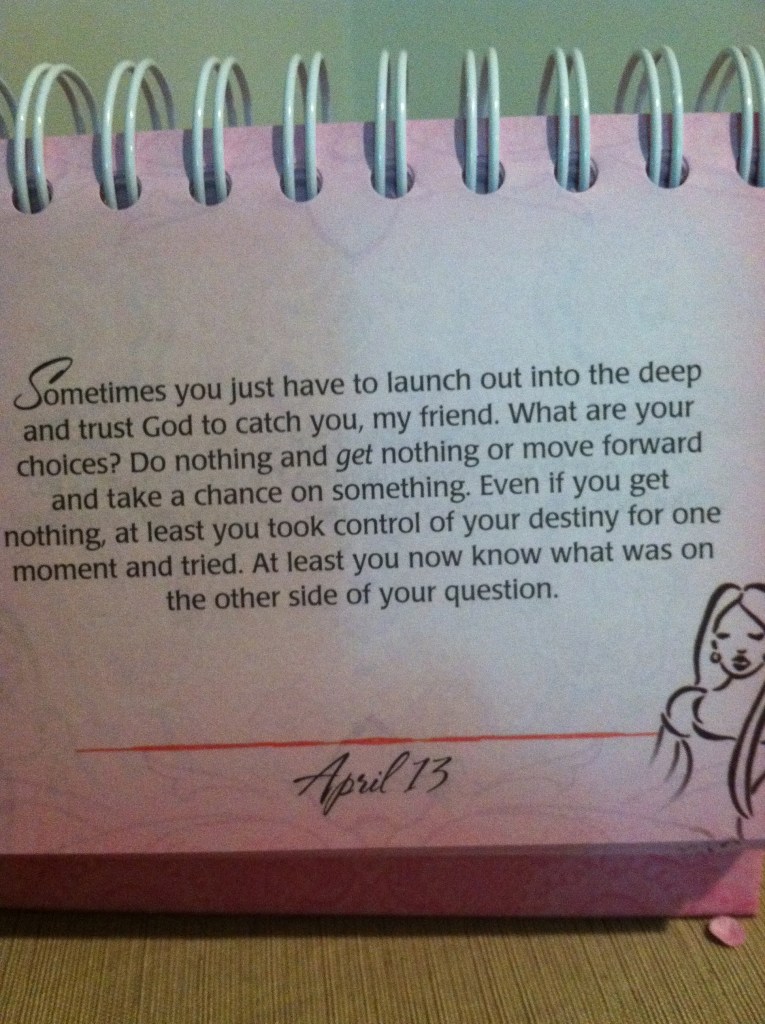 Sometimes you just have to launch out into the deep
and trust God to catch you, my friend. What are your
choices? Do nothing and get nothing or move forward
and take a chance on something. Even if you get
nothing, at least you took control of your destiny for one
moment and tried. At least you now know what was on
the other side of your question.
April 13